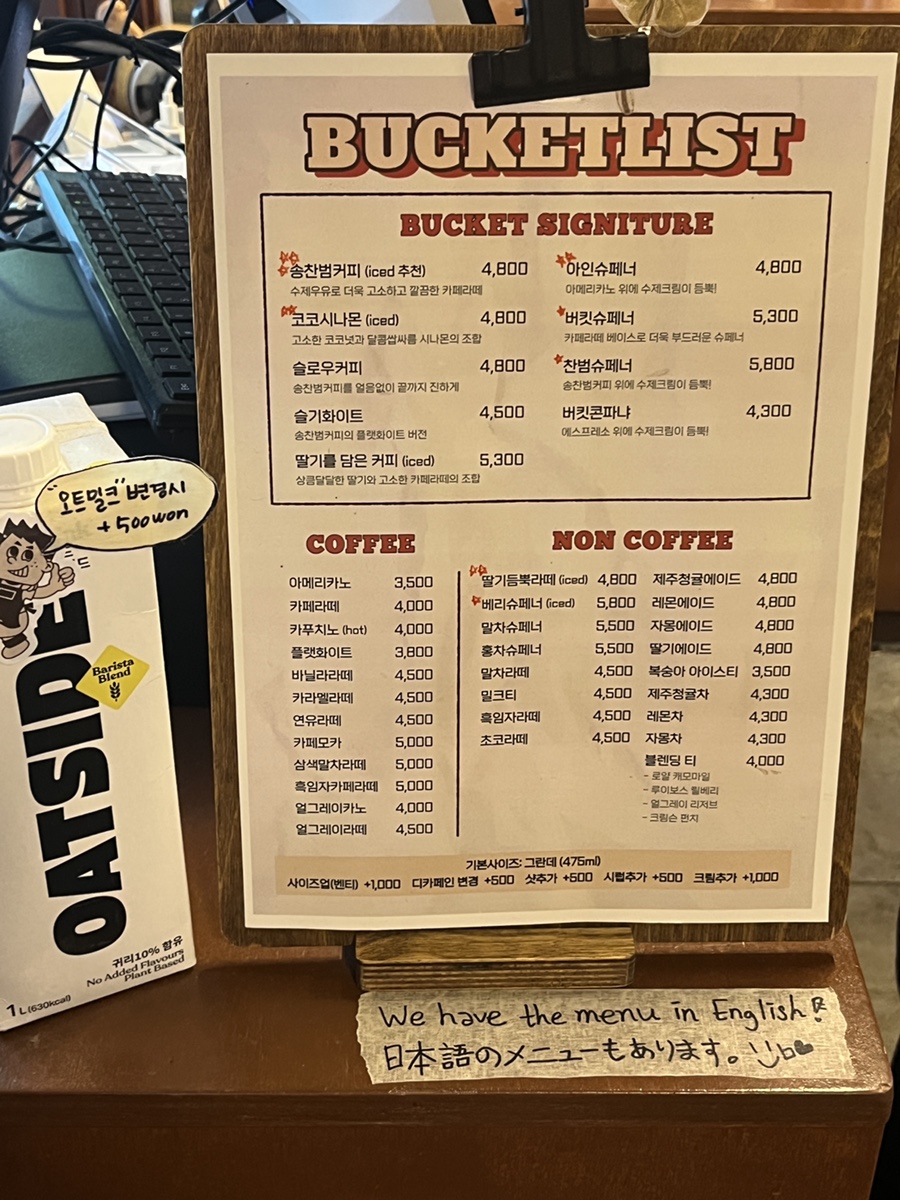 BUCKETLIST
BUCKET SIGNITURE
송찬범커피 (iced 추천) 4,800
수제우유로 더욱 고소하고 깔끔한 카페라떼
코코시나몬 (iced) 4,800
고소한 코코넛과 달콤쌉싸름 시나몬의 조합
슬로우커피 4,800
송찬범커피를 얼음없이 끝까지 진하게
슬기화이트 4,500
송찬범커피의 플랫화이트 버전
딸기를 담은 커피 (iced) 5,300
상큼달달한 딸기와 고소한 카페라떼의 조합
아인슈페너 4,800
아메리카노 위에 수제크림이 듬뿍!
버킷슈페너 5,300
카페라떼 베이스로 더욱 부드러운 슈페너
찬범슈페너 5,800
송찬범커피 위에 수제크림이 듬뿍!
버킷콘파냐 4,300
에스프레소 위에 수제크림이 듬뿍!
COFFEE
아메리카노 3,500
카페라떼 4,000
카푸치노 (hot) 4,000
플랫화이트 3,800
바닐라라떼 4,500
카라멜라떼 4,500
연유라떼 4,500
카페모카 5,000
삼색말차라떼 5,000
흑임자카페라떼 5,000
얼그레이카노 4,000
얼그레이라떼 4,500
NON COFFEE
딸기듬뿍라떼 (iced) 4,800
베리슈페너 (iced) 5,800
말차슈페너 5,500
홍차슈페너 5,500
말차라떼 4,500
밀크티 4,500
흑임자라떼 4,500
초코라떼 4,500
제주청귤에이드 4,800
레몬에이드 4,800
자몽에이드 4,800
딸기에이드 4,800
복숭아 아이스티 3,500
제주청귤차 4,300
레몬차 4,300
자몽차 4,300
블렌딩 티 4,000
- 로얄 캐모마일
- 루이보스 릴베리
- 얼그레이 리저브
- 크림슨 펀치
기본사이즈: 그란데 (475ml)
사이즈업(벤티) +1,000 디카페인 변경 +500 샷추가 +500 시럽추가 +500 크림추가 +1,000
"오트밀크" 변경시
+500won
OATSIDE
Barista
Blend
귀리10% 함유
No Added Flavours
Plant Based
1L (630kcal)
We have the menu in English!
日本語のメニューもあります。